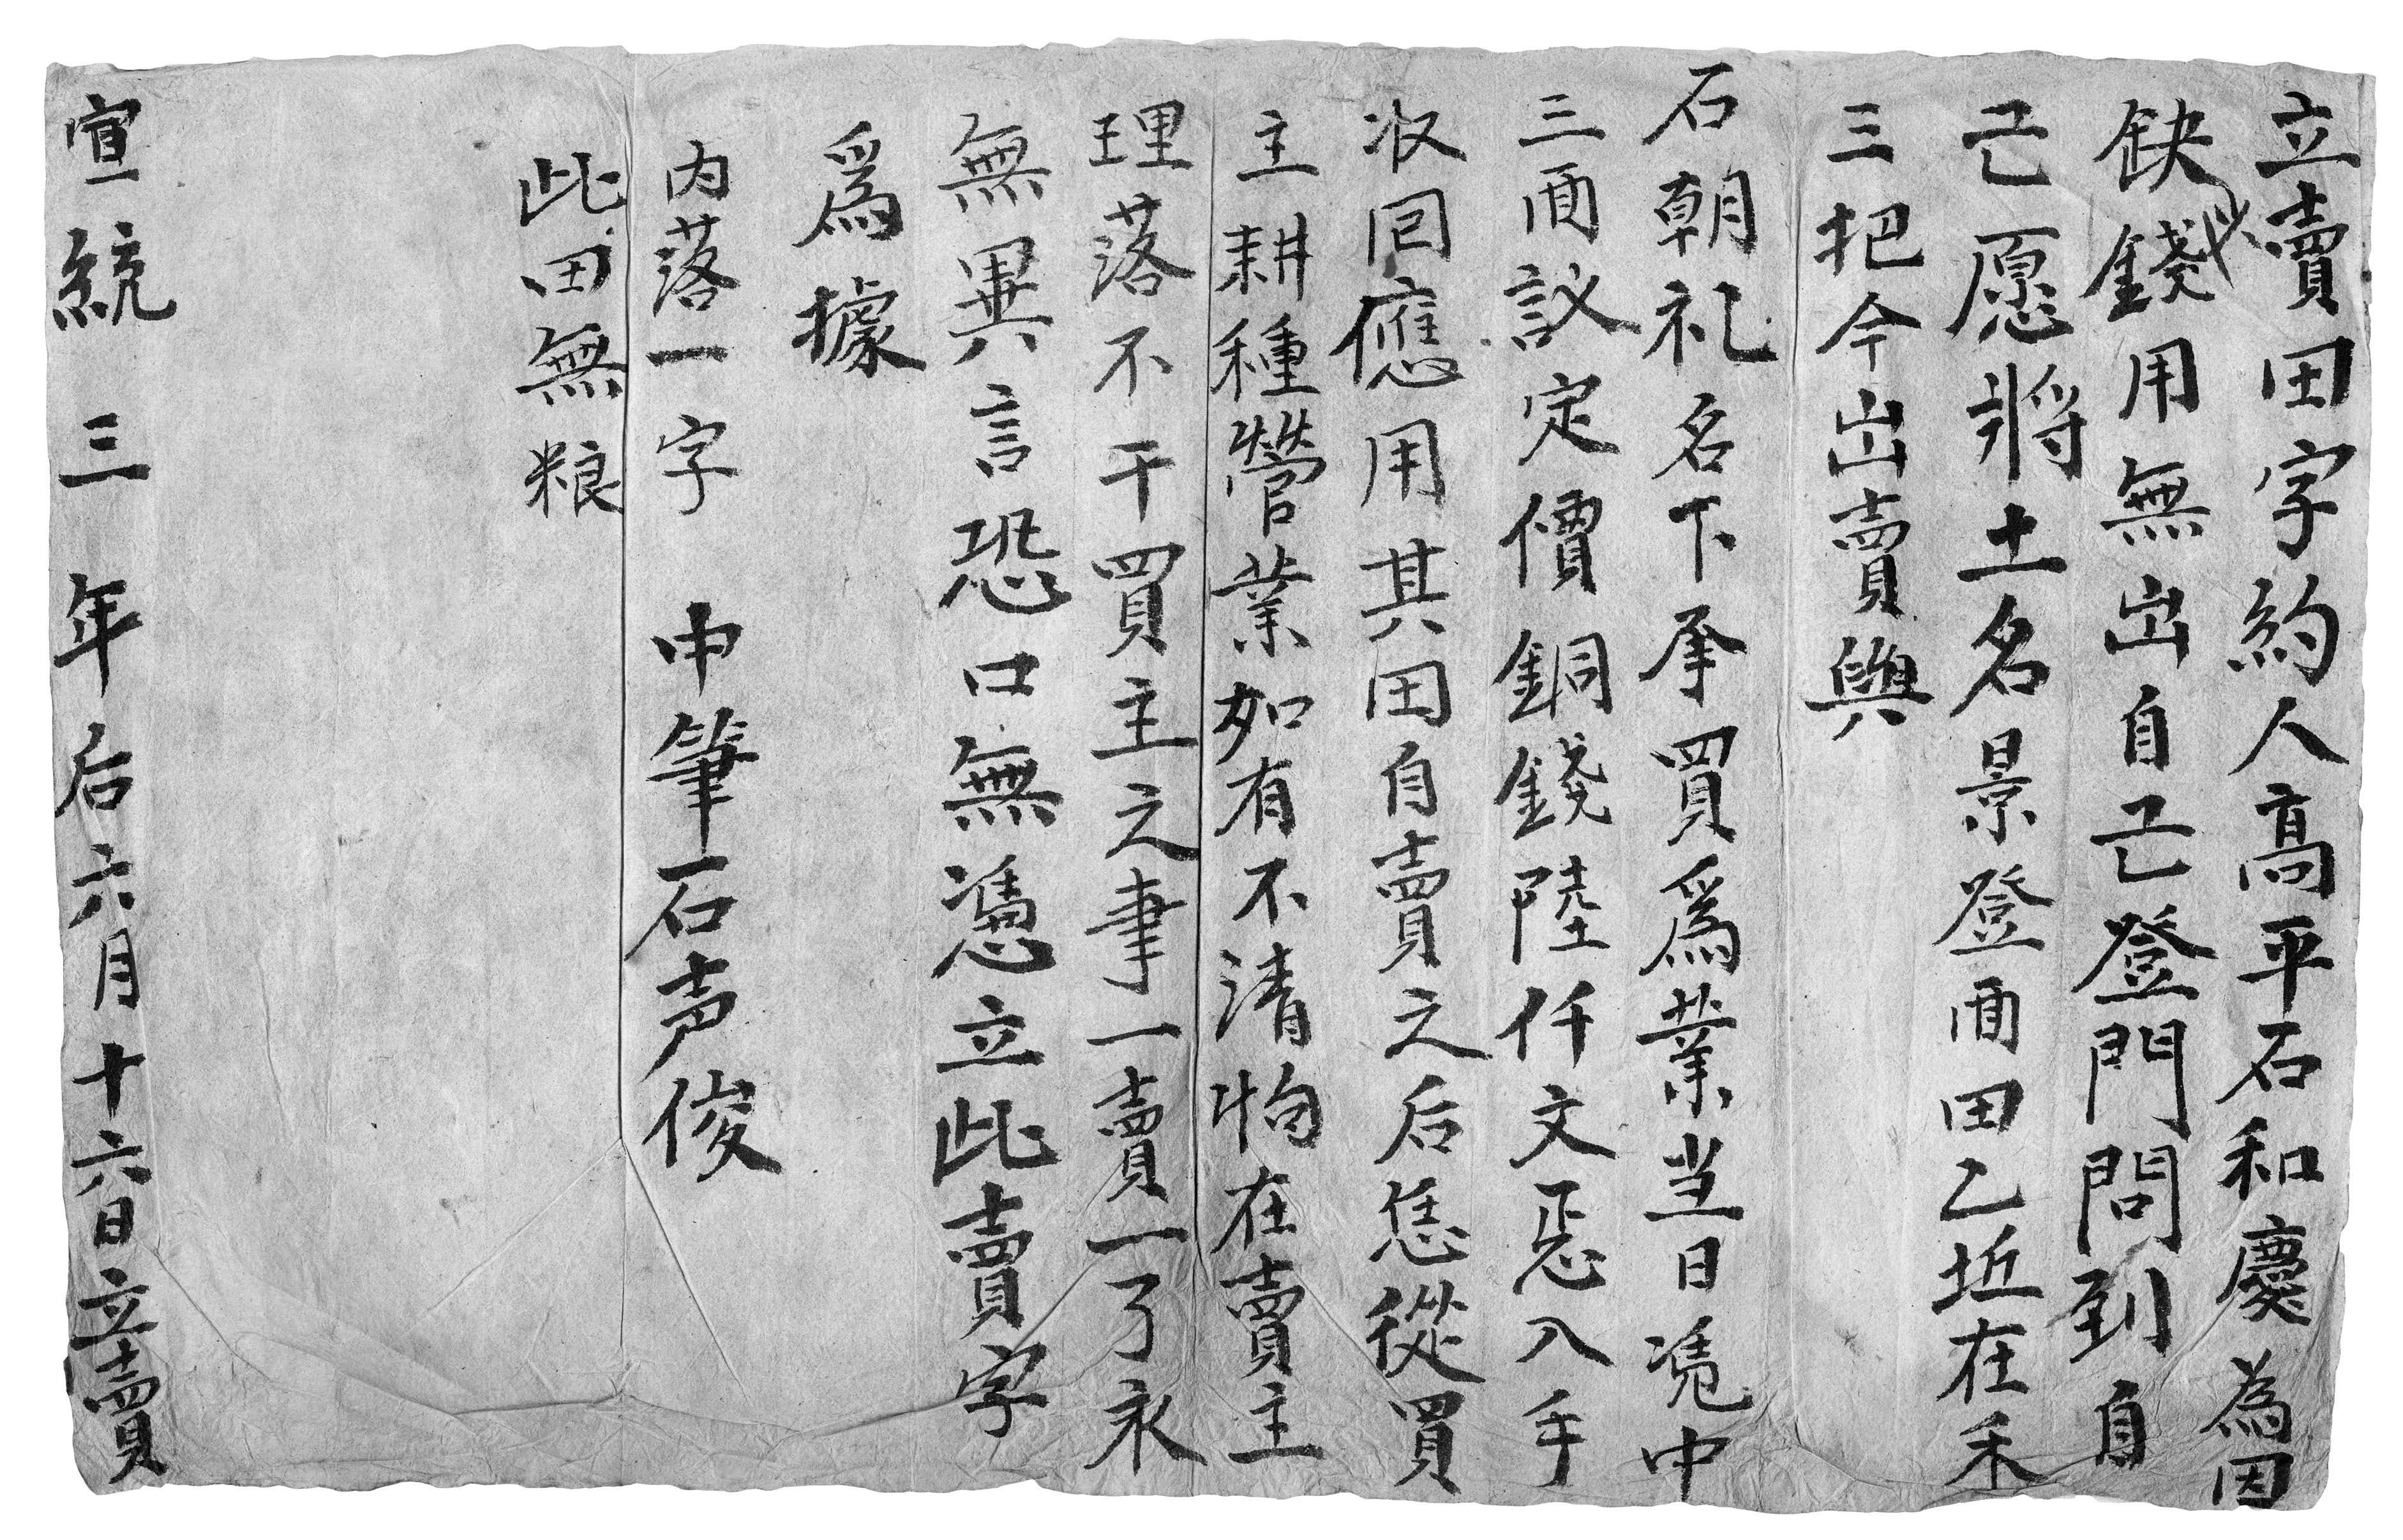 立賣田字約人高平石和慶為因
缺錢用無出自己登門問到自
己愿將土名景登面田乙坵在禾
三把今出賣與
石朝礼名下承買爲業当日憑中
三面議定價銅錢陸仟文恁入手
收回應用其田自賣之后恁從買
主耕種營業如有不清怕在賣主
理落不干買主之事一賣一了永
無異言恐口無憑立此賣字
爲據
内落一字　中筆石声俊
此田無粮
宣統三年后六月十六日立賣